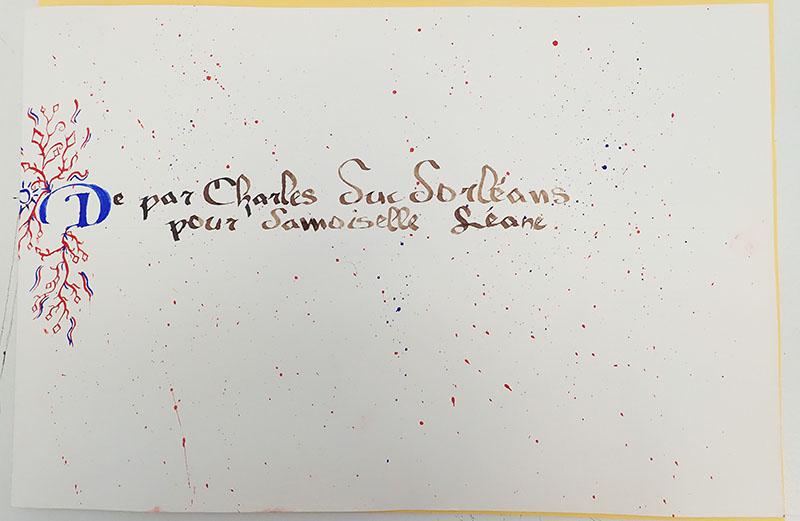 De par Charles duc dorléans
pour damoiselle Léane